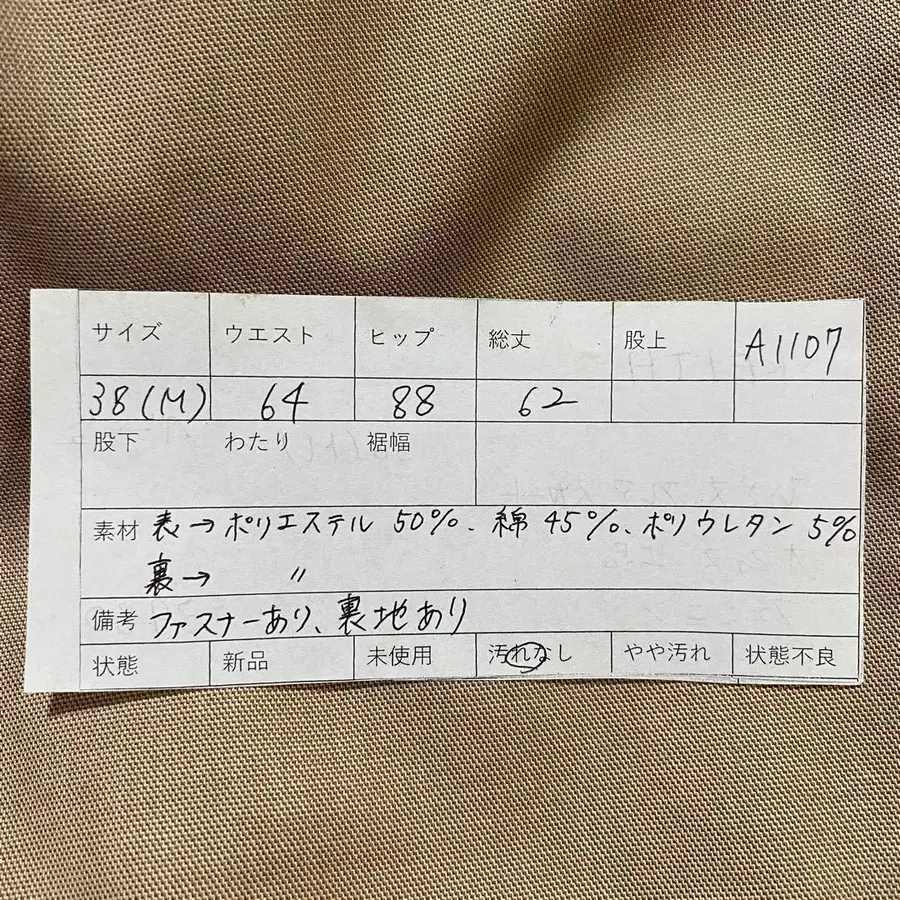 サイズ ウエスト ヒップ 総丈 股上 A1107
38(M) 64 88 62
股下 わたり 裾幅
素材 表→ポリエステル 50%、綿 45%、ポリウレタン 5%
裏→ 〃
備考 ファスナーあり、裏地あり
状態 新品 未使用 汚れなし やや汚れ 状態不良